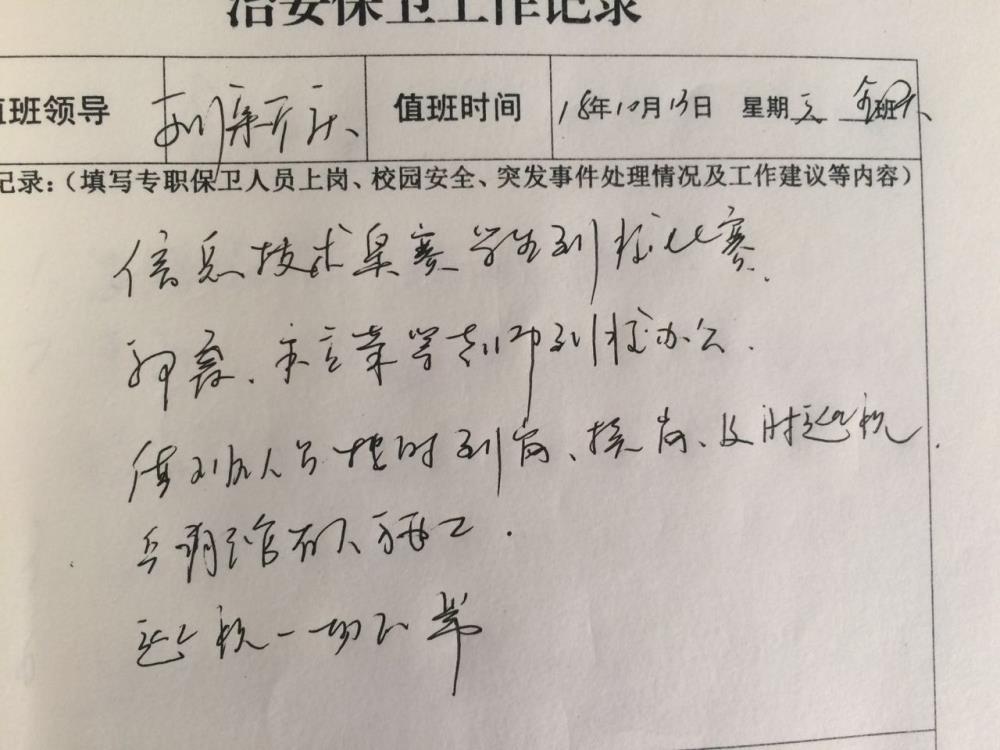 治安保卫工作记录
值班领导 值班时间 18年10月13日 星期六
记录:（填写专职保卫人员上岗、校园安全、突发事件处理情况及工作建议等内容）
信息技术奥赛学生到校比赛.
等老师到校办公.
值班人员按时到岗、接岗、及时巡视.
有人施工.
巡视一切正常